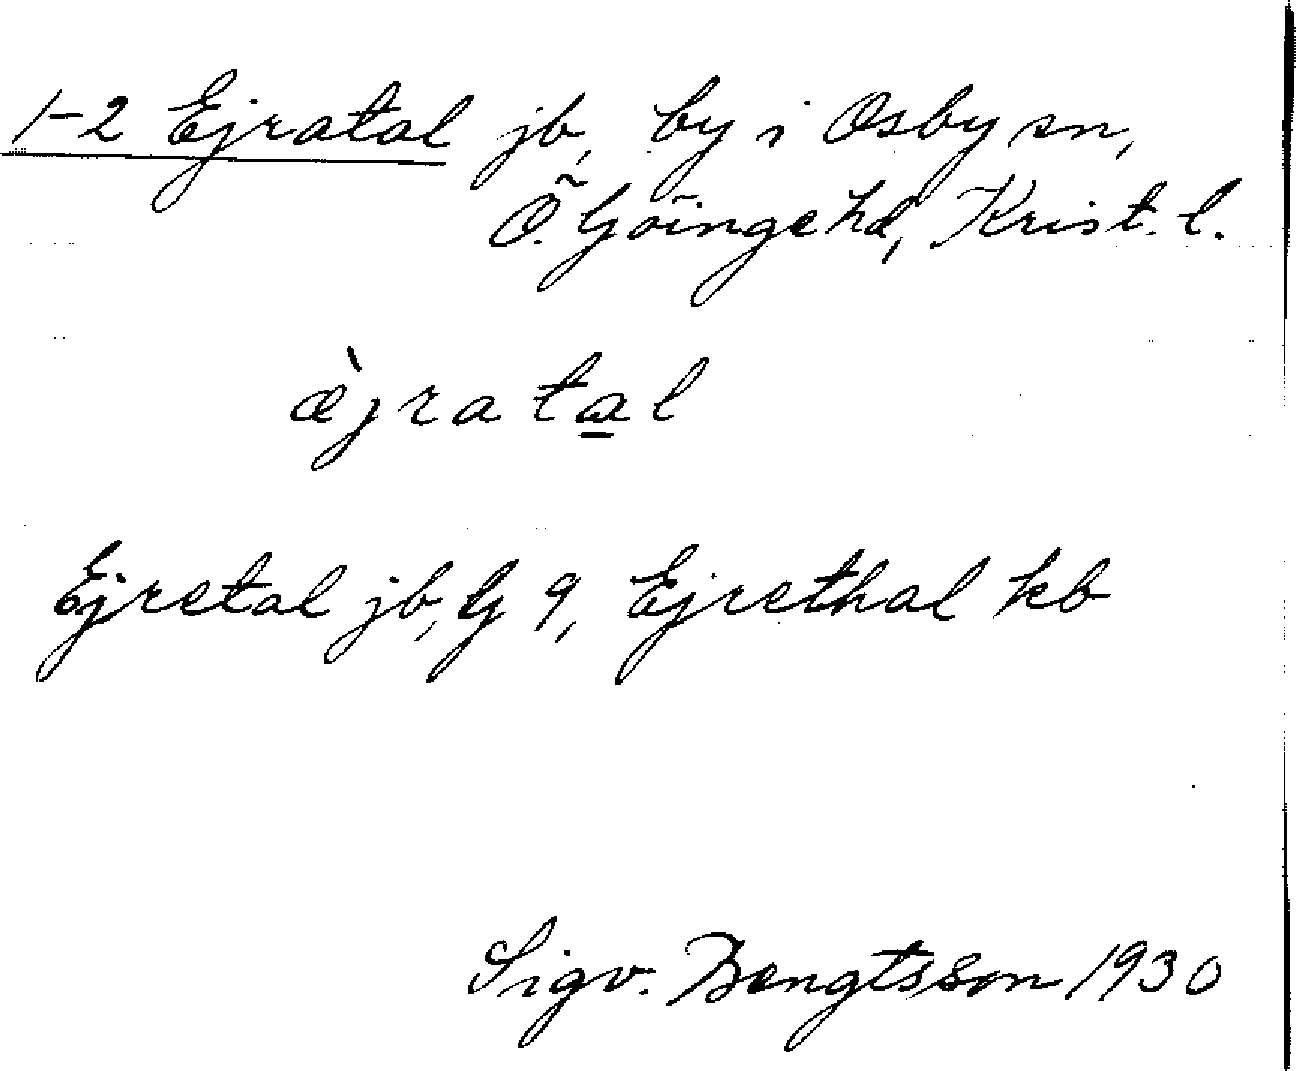 1-2 Ejratal jb, by i Osby sn,
Ö. Göinge hd, Krist. l.
æ̀jrata̲l
Ejretal jb, G 9, Ejrethal kb
Sigv. Bengtsson 1930